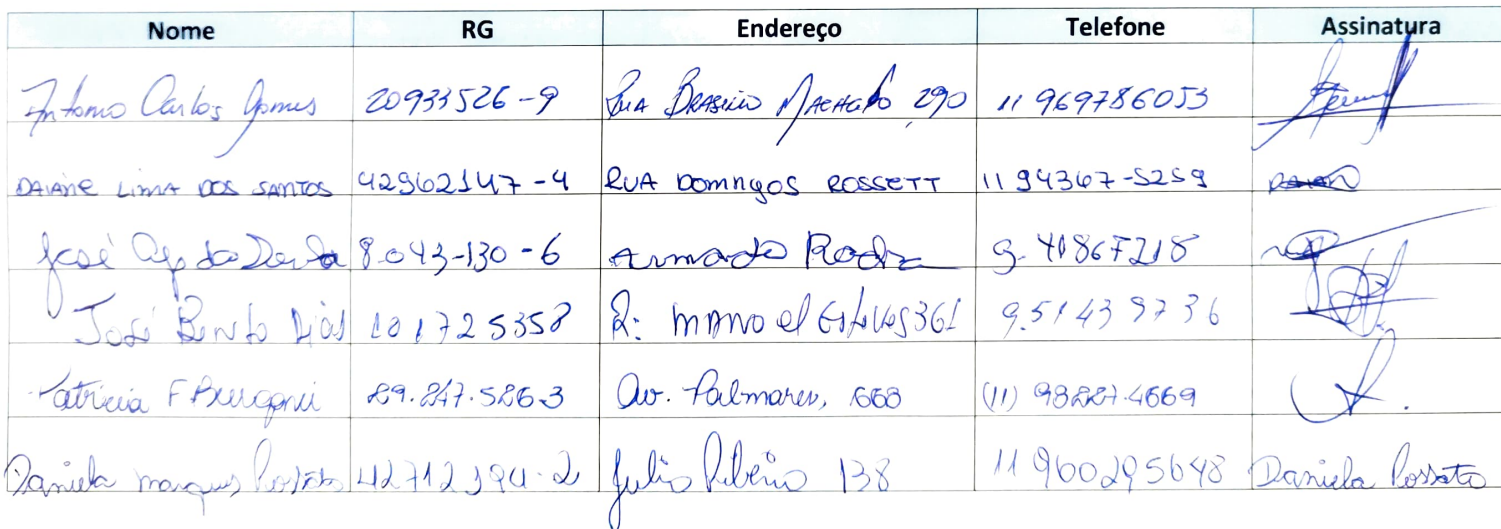 Nome RG Endereço Telefone Assinatura
Antonio Carlos Gomes 20933526-9 Rua Brasilio Machado, 290 11 969786053
DAIANE LIMA DOS SANTOS 42962147-4 RUA DOMINGOS ROSSETT 11 94367-5259
José Ap da 8.043-130-6 Armado 9-40867218
José Bento Dias 101725358 R: manoel Esteves 361 9.51439736
Patricia F 29.247.526-3 Av. Palmares, 668 (11) 98227-4669
Daniela marques Rossato 42712194-2 Julio Ribeiro 138 11 960295648 Daniela Rossato